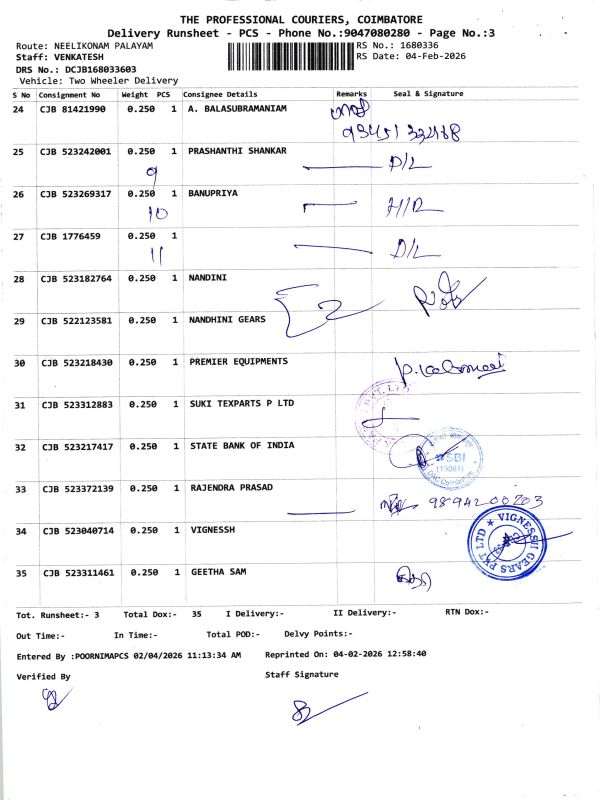 THE PROFESSIONAL COURIERS, COIMBATORE
Delivery Runsheet - PCS - Phone No.:9047080280 - Page No.:3
Route: NEELIKONAM PALAYAM RS No.: 1680336
Staff: VENKATESH RS Date: 04-Feb-2026
DRS No.: DCJB168033603
Vehicle: Two Wheeler Delivery
S No Consignment No Weight PCS Consignee Details Remarks Seal & Signature
24 CJB 81421990 0.250 1 A. BALASUBRAMANIAM
25 CJB 523242001 0.250 1 PRASHANTHI SHANKAR D/L
9
26 CJB 523269317 0.250 1 BANUPRIYA
10
27 CJB 1776459 0.250 1 D/L
11
28 CJB 523182764 0.250 1 NANDINI
29 CJB 522123581 0.250 1 NANDHINI GEARS
30 CJB 523218430 0.250 1 PREMIER EQUIPMENTS
31 CJB 523312883 0.250 1 SUKI TEXPARTS P LTD
32 CJB 523217417 0.250 1 STATE BANK OF INDIA
SBI
(13061)
33 CJB 523372139 0.250 1 RAJENDRA PRASAD 9894200203
34 CJB 523040714 0.250 1 VIGNESSH
VIGNESSH GEARS PVT LTD
35 CJB 523311461 0.250 1 GEETHA SAM
Tot. Runsheet:- 3 Total Dox:- 35 I Delivery:- II Delivery:- RTN Dox:-
Out Time:- In Time:- Total POD:- Delvy Points:-
Entered By :POORNIMAPCS 02/04/2026 11:13:34 AM Reprinted On: 04-02-2026 12:58:40
Verified By Staff Signature